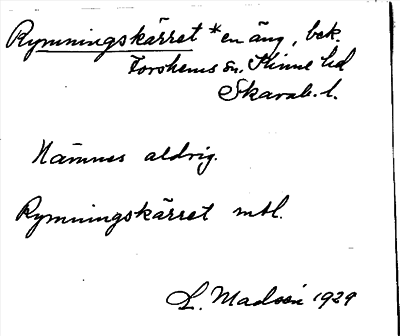 Rymningskärret *en äng, bek.
Forshems sn. Kinne hd
Skarab. l.
Nämnes aldrig.
Rymningskärret mtl.
L. Madsén 1929